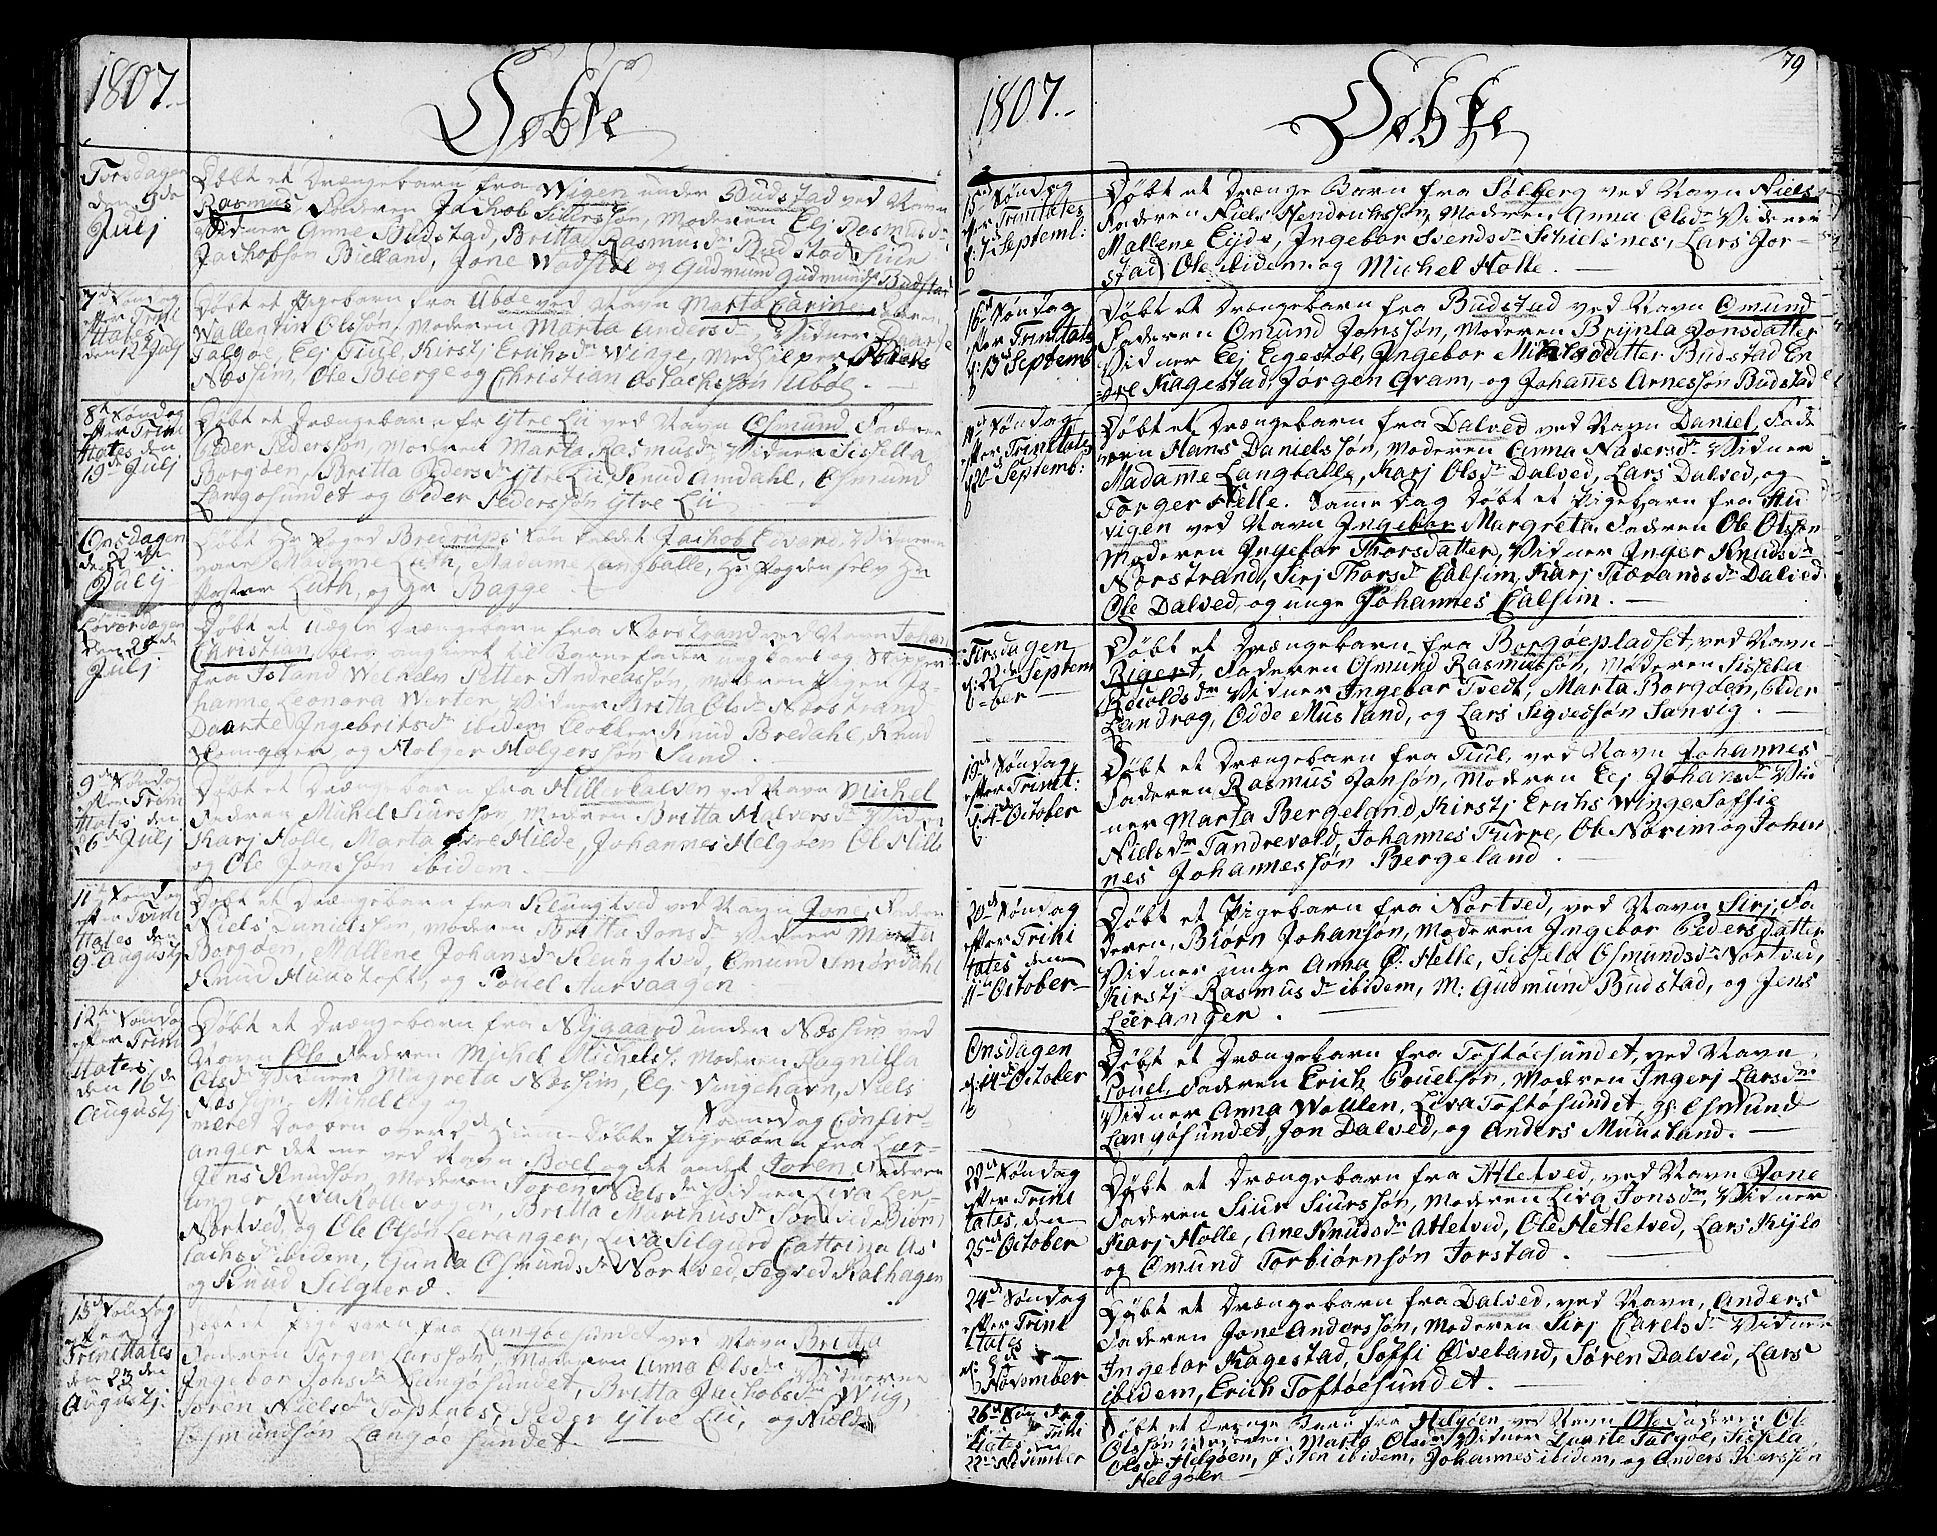 1807.
Døbte
Torsdagen
den 9de
Julj
Døbt et Drængebarn fra Wigen under Budstad ved Navn
Rasmus, Faderen Jachob Siursøn, Moderen Elj Rasmusdr
Vidner Anne Budstad, Britta Rasmusdr Budstad Siur
Jachobsøn Bieland, Jone Wadstøl og Gudmund Gudmunds: Budstad
7de Søndag
efter Trini
tates
den 12 Julj
Døbt et Pigebarn fra Ubøe ved Navn Marta Carine Faderen
Wallentin Olsøn, Moderen Marta Andersdr Vidner
Talgøe, Elj Tiul Kirstj Erichsdr Winge,
Næssim, Ole Bierge og Christian Østachsøn Ubøe. —
8de Søndag
efter Trini
tates den
19de Julj
Døbt et Drængebarn fr Ytre Lii ved Navn Osmund Faderen
Peder Pedersøn, Moderen Marta Rasmusdr Vidner Sissella
Borgøen, Britta Pedersdr Ytre Lii Knud Amdahl, Osmund
Langøsundet og Peder Pedersøn ytre Lii
Onsdagen
de 22de
Julj
Døbt Hr Foged Breirups Søn kaldet Jachob Edvard. Vidnerne
vare Madame Luth, Madame Langballe, Hr Fogden selv Hr
Pastor Luth, og Hr Bagge.
Løverdagen
den 25de
Julj
Døbt et Uægte Drængebarn fra Norstrand ved Navn Johan
Christian, blev angivet til Barnefader ungkarl og Skipper
fra Island Welhelm Petter Andreasøn, Moderen Pigen Jo-
hanne Leonora Werter, Vidner Britta Olsdr Norstrand
Daarte Ingebritsdr ibidem, Klokker Knud Bredahl, Knud
og Holger Holgersøn Sund.
9de Søndag
efter Trini
tates den
26de Julj
Døbt et Drængebarn fra Hillestalen ved Navn Michel
Faderen Mikel Siursøn Moderen Britta Halversdr Vidner
Karj Holle, Marta øvre Hilde, Johannes Helgøen Ole Hille
og Ole Jonsøn ibidem.
11te Søndag
efter Trini
tates den
9 Augustj
Døbt et Drængebarn fra Klungtved ved Navn Jone, Faderen
Niels Lunidsøn, Moderen Britta Jonsdr Vidner Marta
Borgøen, Mallene Johansdr Kleungtved, Omund Smørdahl
Knud Haustoft, og Pouel Aarvaagen
12te Søndag
efter Trini
tates
den 16de
Augustj
Døbt et Drængebarn fra Nijgaard under Næssim ved
Navn Ole Faderen Michel Michels: Moderen Ragnilla
Olsdr Vidner Margreta Næssim, Elj Vingehavn, Niels
Næssim, Michel og
Samme dag Confir-
meret Daaben over Hieme Døbte Pigebørn fra Lær-
anger det ene ved Navn Boel og det andet Joren Faderen
Jens Knudsøn, Moderen Joren Nielsdr Vidner Liva Ler-
anger Liva Kollevogen, Britta Marchusdr Nortved Biørn
Nortved, og Ole Olsøn Leeranger, Liva Silgierd Cattrina As
lachsdr ibidem, Gunla Osmundsdr Nortved, Segved Kalhagen
og Knud Silgierd.
13de Søndag
efter
Trinittates
den 23den
Augustj:
Døbt et Pigebarn fra Langøesundet ved Navn Britta
Faderen Torger Larsøn, Moderen Anna Olsdr Vidnerne
Ingebor Johsdr Langøsundet, Britta Jachobsdr Wiig,
Søren Nielsdr Toftnes, Peder Ytre Lii, og Niels
Osmundsøn Langøe sundet.
1807.
Døbte
79
15de Søndag
efter Trinitates
d: 7de Septembr:
Døbt et Drænge Barn fra Solberg ved Navn Niels
Faderen Niels Hendrichsøn, Moderen Anna Olsdr Vidner
Mallene Eijde, Ingebor Svendsdr Schielsnes, Lars Jor-
stad Ole ibidem og Michel Holle. —
16de Søndag
efter Trinitates
d: 13de Septembr
Døbt et Drængebarn fra Budstad ved Navn Omund
Faderen Omund Jonsøn, Moderen Brijnla Jonsdatter
Vidner Elj Egestøl, Ingebor Mikelsdatter Budstad En
dre Kagestad, Jørgen Qvam, og Johannes Arnesøn Budstad
Søndag
efter Trinitates
d: 20de Septemb:
Døbt et Drængebarn fra Dalved ved Navn Daniel, Fade
ren Hans Danielsøn, Moderen Anna Naversdr Vidner
Madamme Langballe, Karj Olsdr Dalved, Lars Dalved, og
Torger Helle. Samme Dag Døbt et Pigebarn fra Hu
vigen ved Navn Ingebor Margreta. Faderen Ole Olsøn
Moderen Ingebor Thorsdatter, Vidner Inger Knudsdr
Norstrand, Sirj Thorsdr Calsim, Karj Tiærandsdr Dalved
Ole Dalved, og unge Johannes Calsim. —
Tirsdagen
d: 22de Septem
ber
Døbt et Drængebarn fra Borgøepladset, ved Navn
Rigert, Faderen Osmund Rasmusøn, Moderen Sisselu
Rouoldsdr Vidner Ingebor Tvedt, Marta Borgøen, Peder
Landrog, Odde Musland, og Lars Sigvesøn Sanvig. —
19de Søndag
efter Trinit:
d: 4de October
Døbt et Drængebarn fra Tiul, ved Navn Johannes
Faderen Rasmus Jonsøn, Moderen Elj Johansdr Vid
ner Marta Bergeland, Kirstj Erichs Winge Soffie
Nielsdr Tandrevold, Johannes Furre, Ole Norim og Johan
nes Johannessøn Bergeland.
20de Søndag
efter Trini
tates den
11te October
Døbt et Pigebarn fra Nortved, ved Navn Sirj, Fa
deren, Biørn Johansøn, Moderen Ingebor Pedersdatter
Vidner unge Anna Ø: Helle, Sissela Osmundsdr Nortved,
Kirstj Rasmusdr ibidem, M: Gudmund Budstad, og Jens
Leeranger.
Onsdagen
d: 14de October
Døbt et Drængebarn fra Toftøesundet, ved Navn
Pouel, Faderen Erich Pouelsøn, Moderen Ingerj Larsdr
Vidner Anna Wollen, Liva Toftøsundet, gl: Osmund
Langøsundet, Jon Dalved, og Anders Muusland. —
22de Søndag
efter Trini
tates, den
25de October
Døbt et Drængebarn fra Hletved, ved Navn Jone
Faderen Siur Siursøn, Moderen Liva Jonsdr, Vidner
Karj Holle, Ane Knudsdr Hletved, Ole Hetletved, Lars Kijlo
og Omund Torbiørnsøn Jorstad.
24de Søndag
efter Trini
tates
d: 8de
November
Døbt et Drængebarn fra Dalved, ved Navn, Anders
Faderen Jone Andersøn, Moderen Sirj Carelsdr Vidner
Ingebor Kagestad, Soffi Øveland, Søren Dalved, Lars
ibidem, Erich Toftøesundet.
26de Søndag
efter Trini
tates den
22de November
Døbt et Drænge Barn fra Helgøen, ved Navn Ole Faderen Ole
Olsøn Moderen Marta Olsdr Vidner Dorrite Talgøe, Sissela
Olsdr Helgøen, Østen ibidem, Johannes ibidem, og Anders Iversøn
Helgøen —